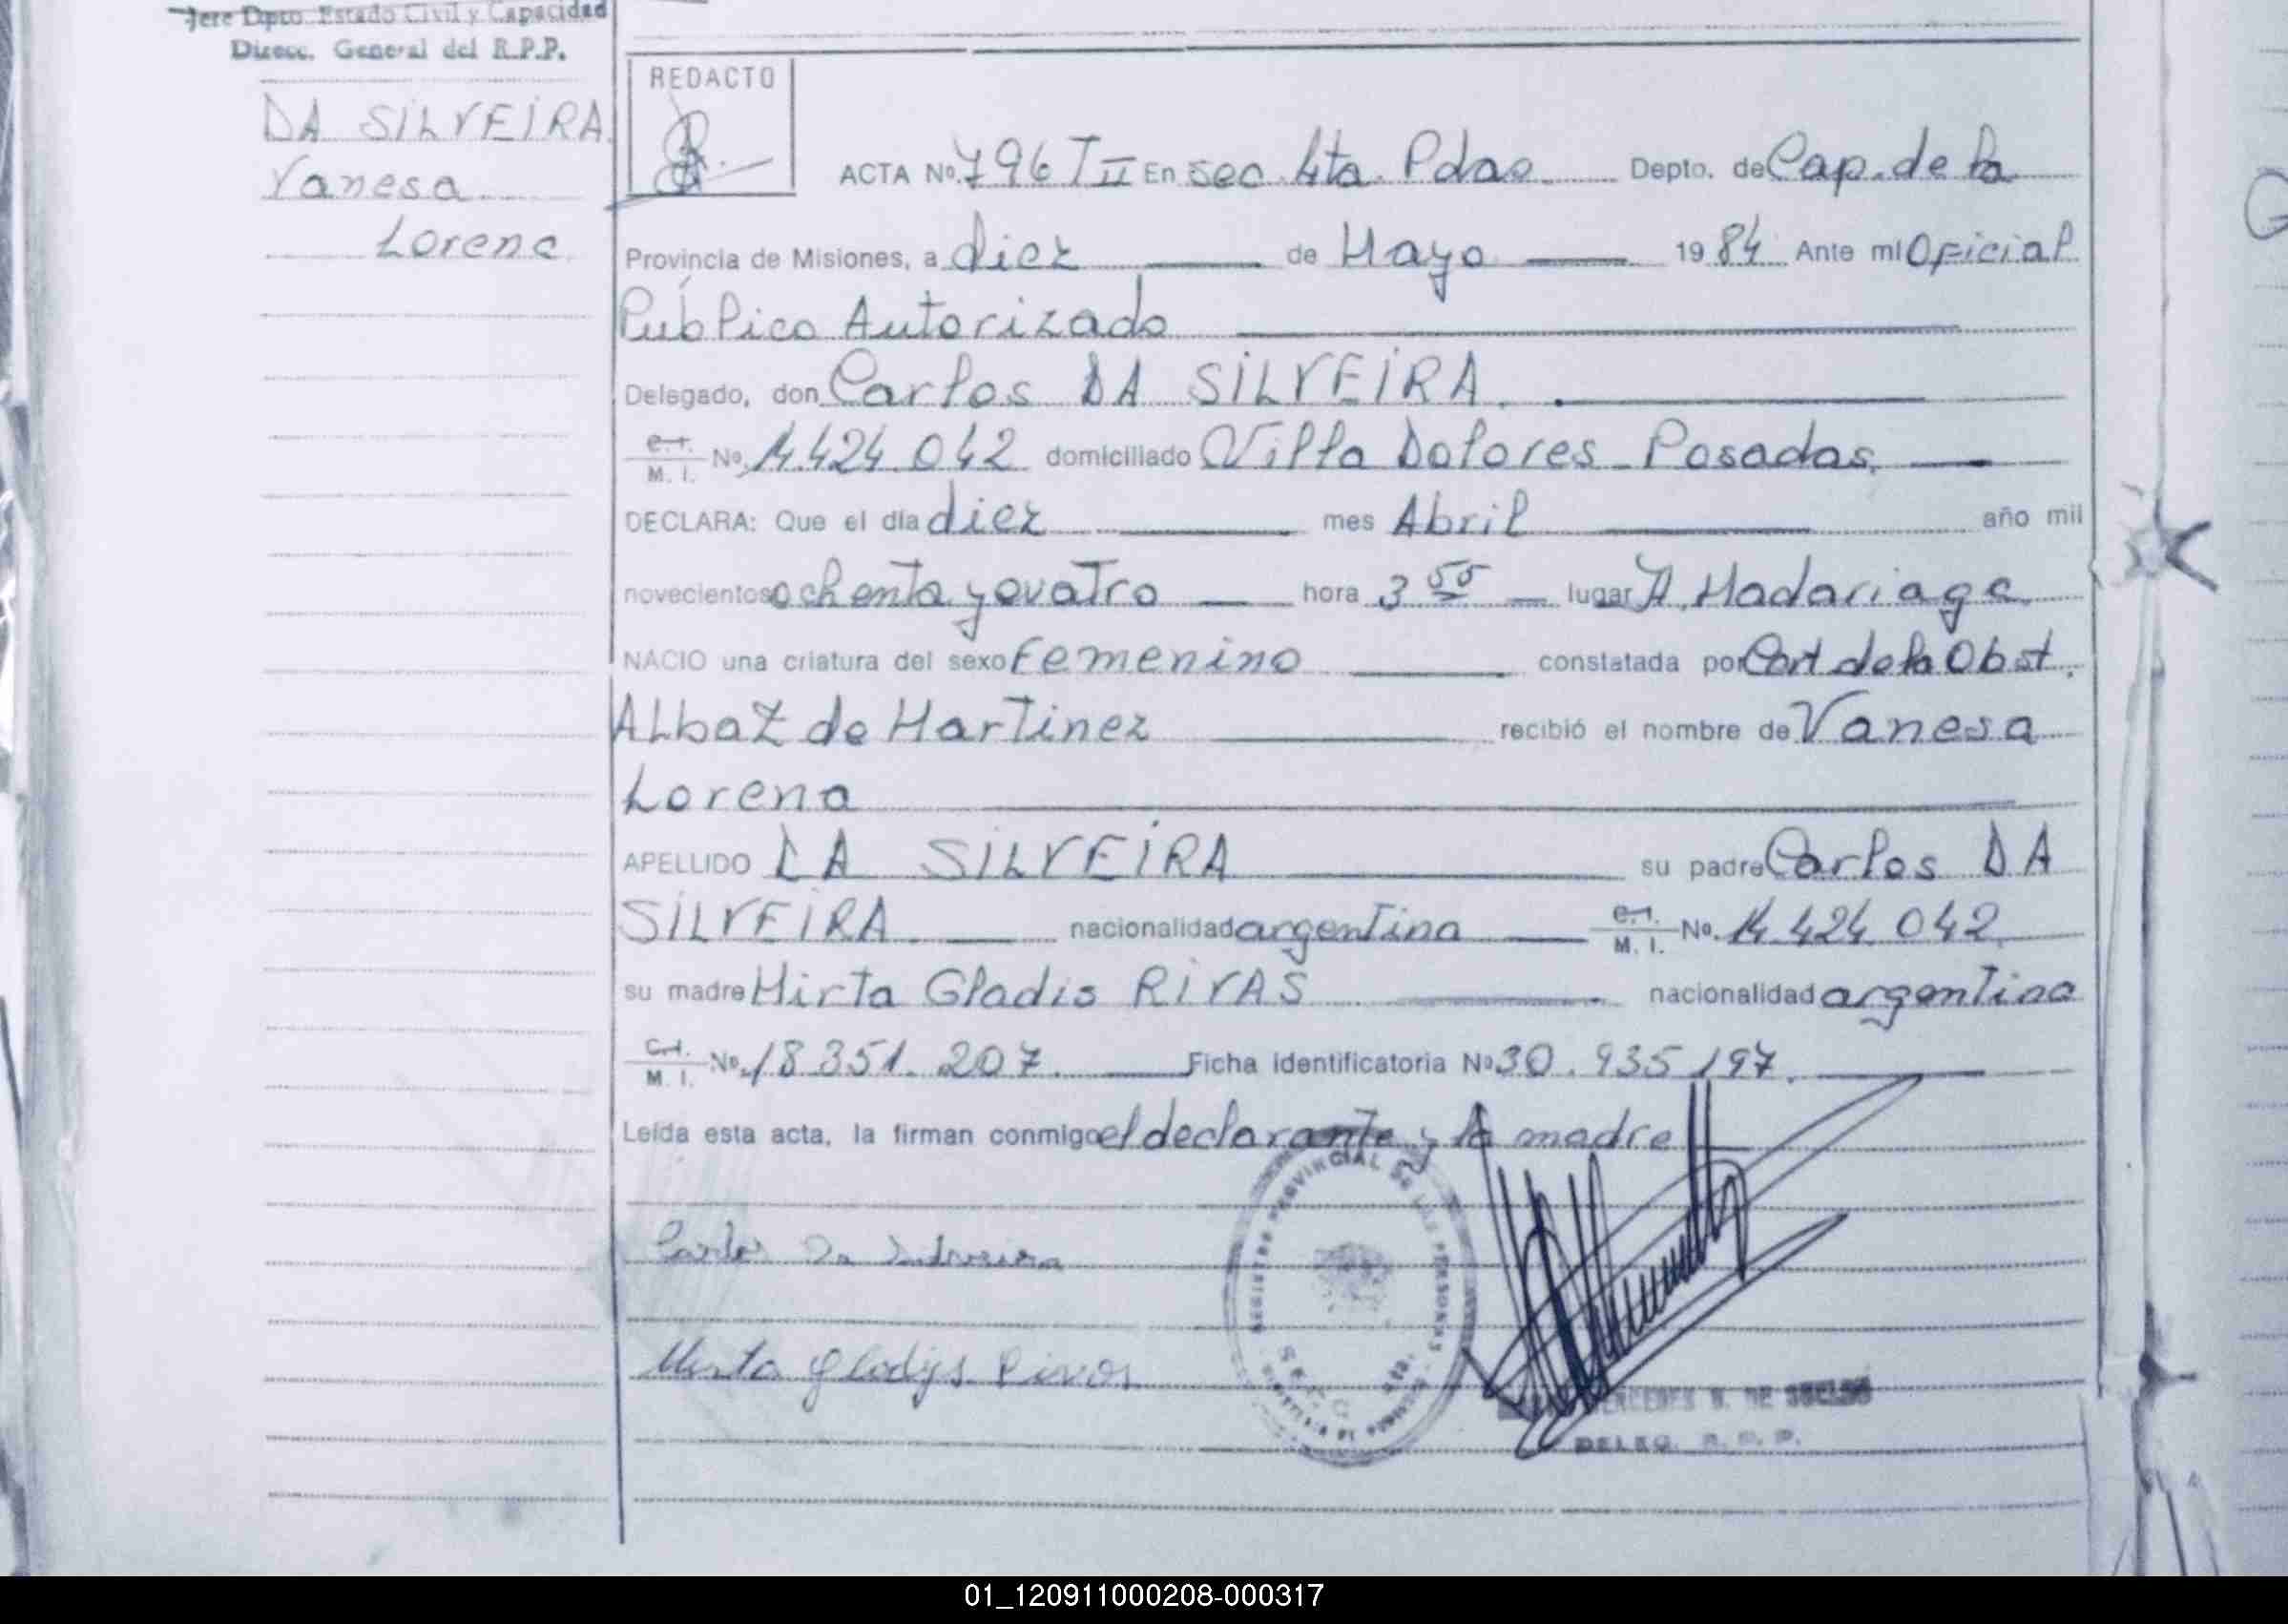 Jefe Dpto. Estado Civil y Capacidad
Direcc. General del R.P.P.
DA SILVEIRA
Vanesa
Lorena
REDACTO
ACTA Nº 796 T II En sec. 4ta. Pdas. Depto. de Cap. de la
Provincia de Misiones, a diez de Mayo 1984 Ante mi Oficial
Público Autorizado
Delegado, don Carlos DA SILVEIRA.
C.I. M. I. Nº 14.424.042 domiciliado Villa Dolores - Posadas,
DECLARA: Que el día diez mes Abril año mil
novecientos ochenta y cuatro hora 3 55 lugar H. Madariaga
NACIO una criatura del sexo Femenino constatada por Cert de la Obst.
Alba Z de Martinez recibió el nombre de Vanesa
Lorena
APELLIDO DA SILVEIRA su padre Carlos DA
SILVEIRA nacionalidad argentina C.I. M. I. Nº 14.424.042
su madre Mirta Gladis RIVAS nacionalidad argentina
C.I. M. I. Nº 18.351.207. Ficha identificatoria Nº 30.935.197.
Leída esta acta, la firman conmigo el declarante y la madre
Carlos Da Silveira
Mirta Gladys Rivas
REGISTRO PROVINCIAL DE LAS PERSONAS
SECC. 4ta.
MERCEDES N. DE
DELEG. R. P. P.
01_120911000208-000317